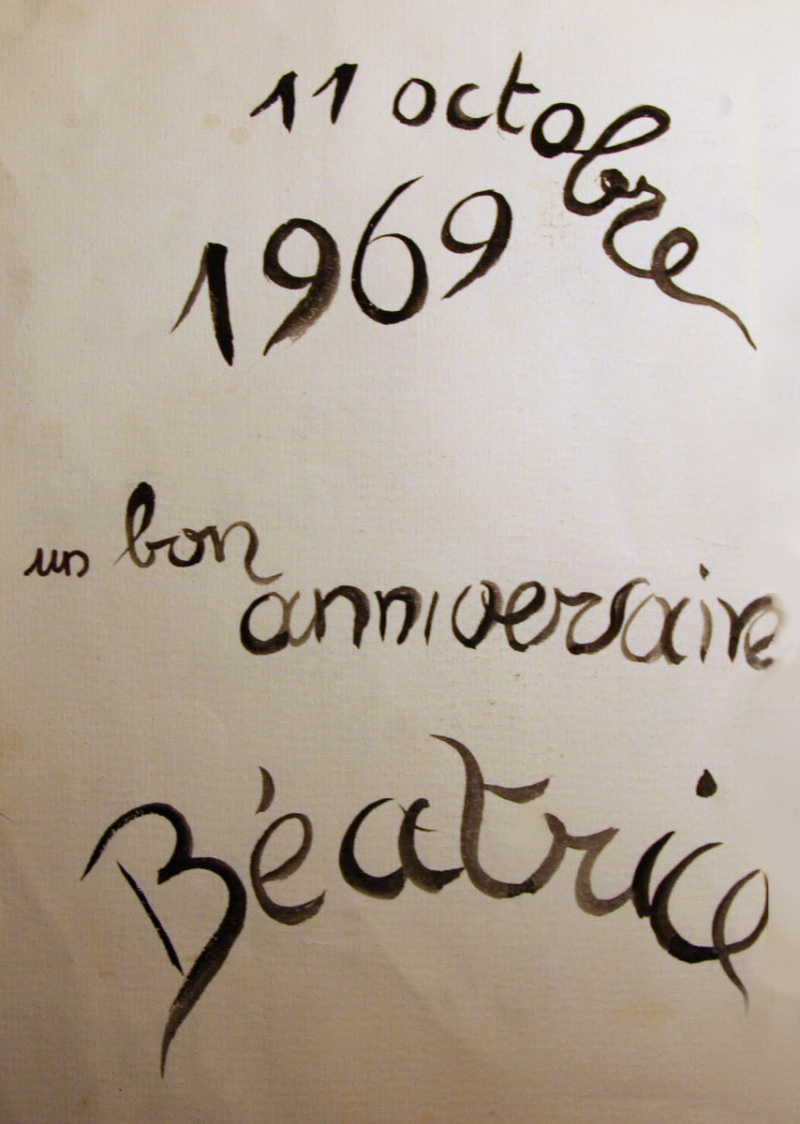 11 octobre
1969
un bon
anniversaire
Béatrice